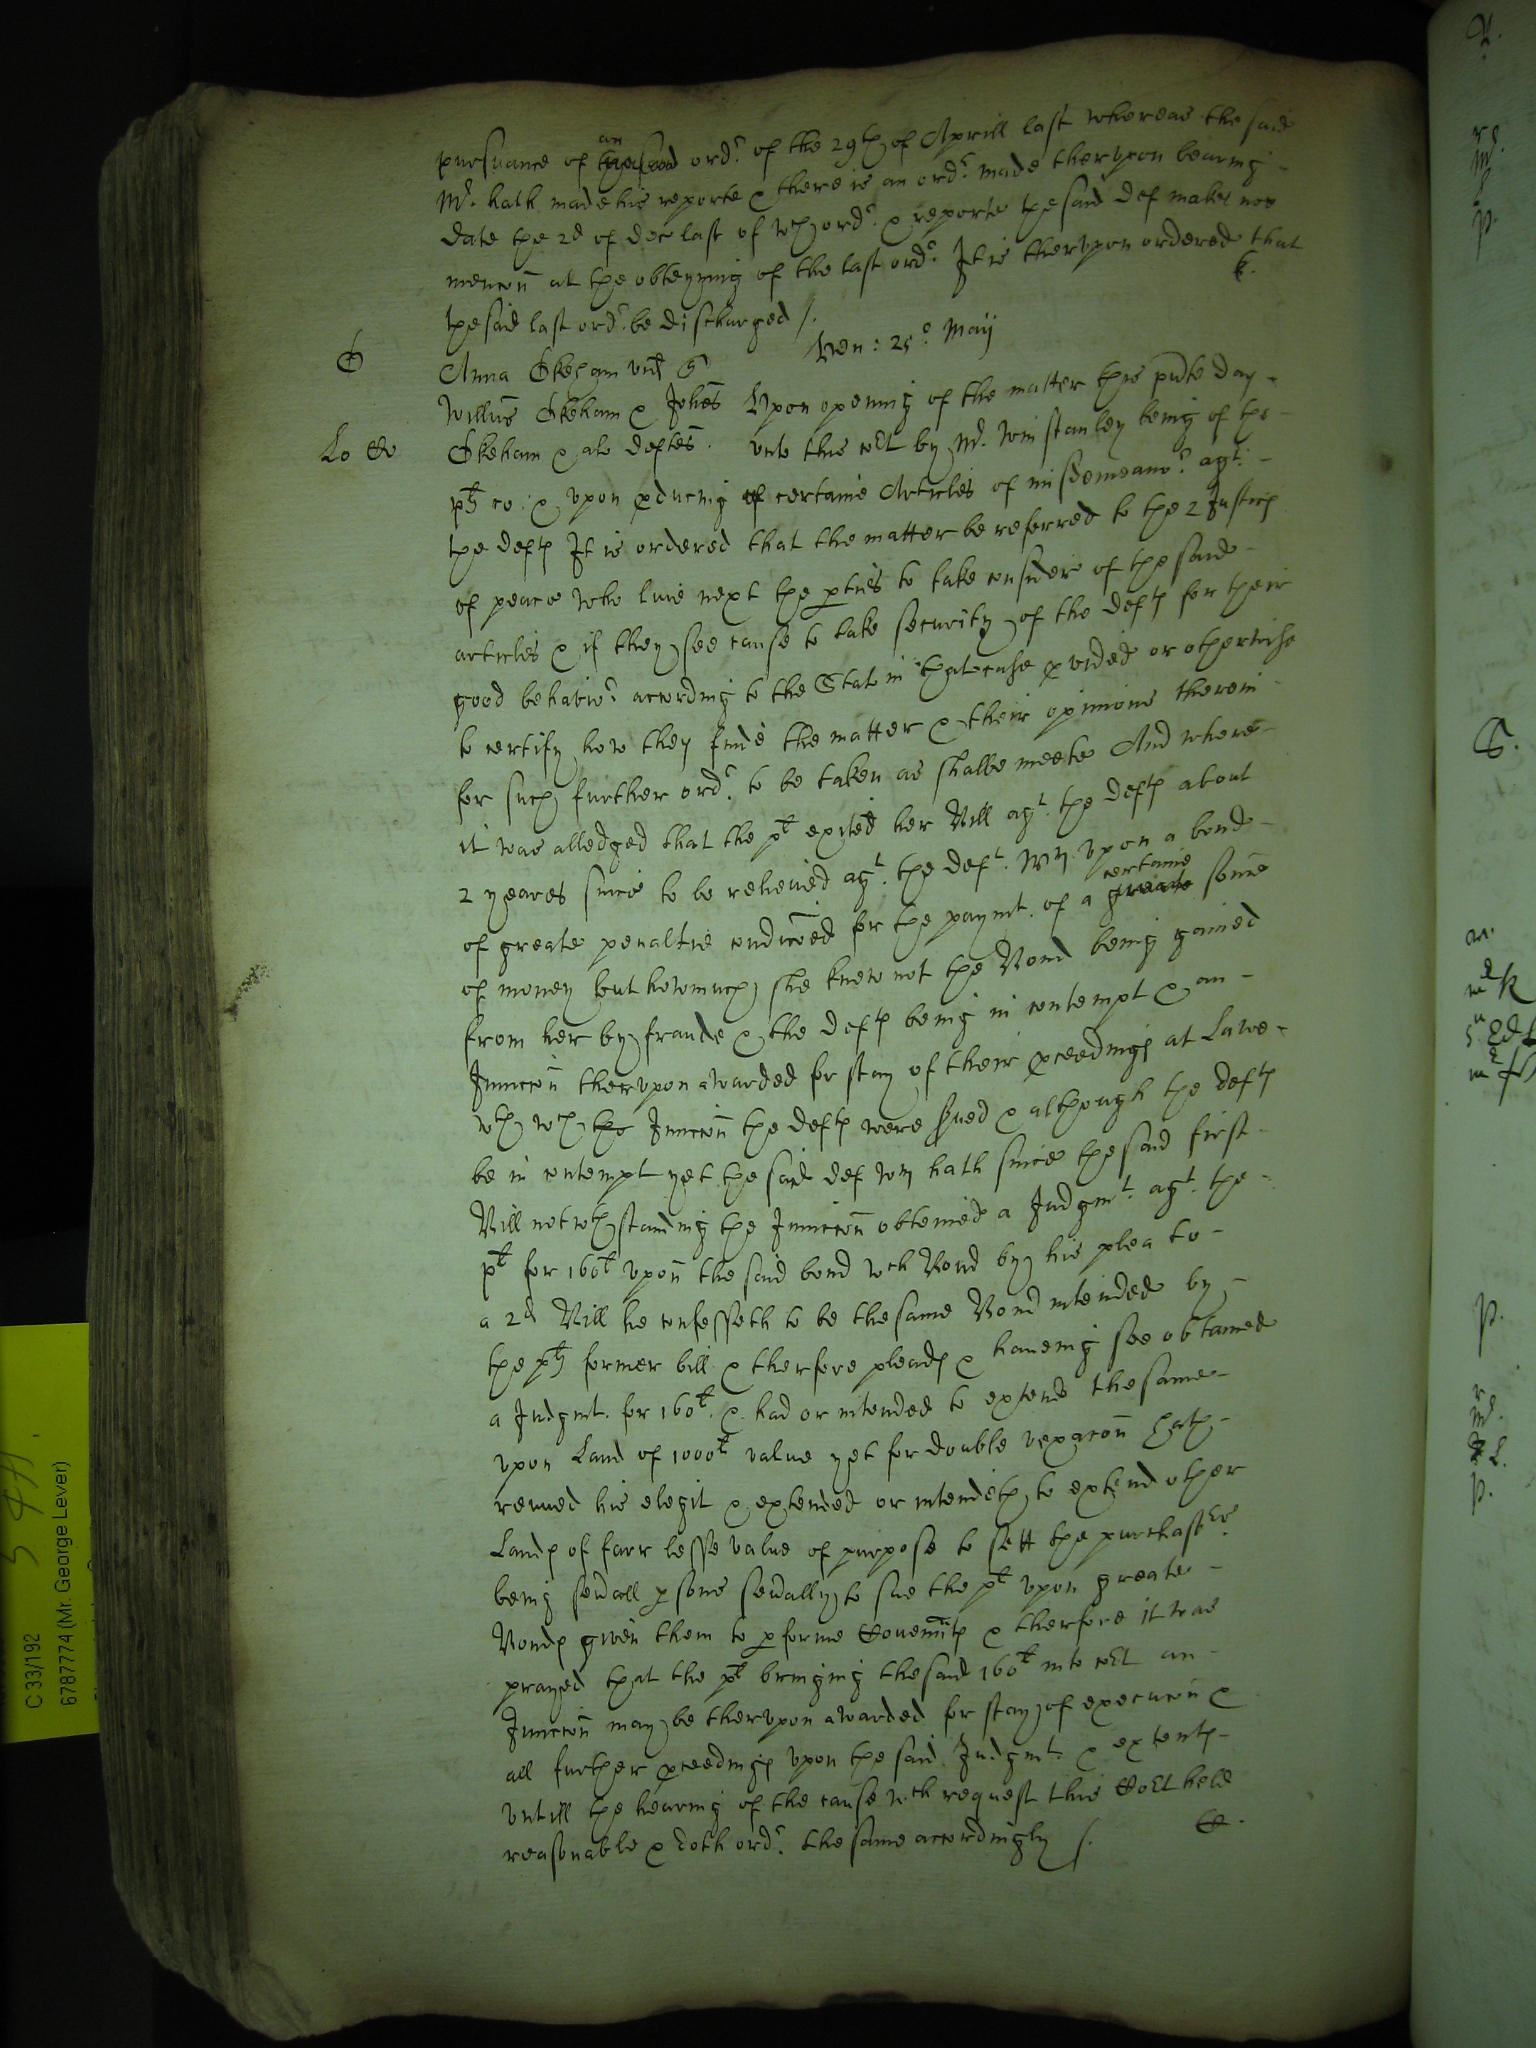 pursuance of an ordr. of the 29th of Aprill last whereas the said
Mr. hath made his reporte & there is an ordr. made therupon bearing
date the 2d of Dec last of wch ordr. & reporte the said def makes noe
mencon at the obteyning of the last ordr. It is therupon ordered that
the said last ordr. be discharged /.
k.
Ven: 25o. Maij
O
Anna Okeham vid
Willus Okeham & Johes
Okeham & al deftes.
Lo Co
Upon opening of the matter this pnte day
unto this Cort by Mr. Winstanley being of the
plts co: & upon pducing of certaine Articles of misdemeanor. agt.
the defts It is ordered that the matter be referred to the 2 Justices
of peace who live next the pties to take consider of the said
articles & if they see cause to take security of the defts for their
good behavior. according to the Stat in that case pvided or otherwise
to certify how they finde the matter & their opinions therein
for such further ordr. to be taken as shalbe meete And where
it was alledged that the plt exited her Bill agt. the defts about
2 yeares since to be releived agt. the deft. Wm upon a bond
of greate penaltie condicoed for the paymt. of a certaine greate some
of money but howmuch she knew not the Bond being gained
from her by fraude & the defts being in contempt & an
Juncon therupon awarded for stay of their pceedings at Lawe
wth wch the Juncon the defts were sved & although the defts
be in contempt yet the said def Wm hath since the said first
Bill notwthstanding the Junccon obteined a Judgmt. agt. the
plt for 160l upon the said bond wch Bond by his plea to
a 2d Bill he confesseth to be the same Bond intended by
the plts former bill & therfore pleads & haveing soe obtained
a Judgmt. for 160l. & had or intended to extend the same
upon Land of 1000l value yet for double vexacon hath
renued his elegit & extended or intendeth to extend other
Lands of farr lesse value of purpose to sett the purchasers
being sevall psons sevally to sue the plt upon greate
Bonds given them to pforme Covennts & therfore it was
prayed that the plt bringing the said 160l into Cort an
Junccon may be therupon awarded for stay of execucon &
all further pceedings upon the said Judgmt. & extents
untill the hearing of the cause wch request this Cort held
reasonable & doth ordr. the same accordingly /.
C.
C 33/192
6787774 (Mr. George Lever)